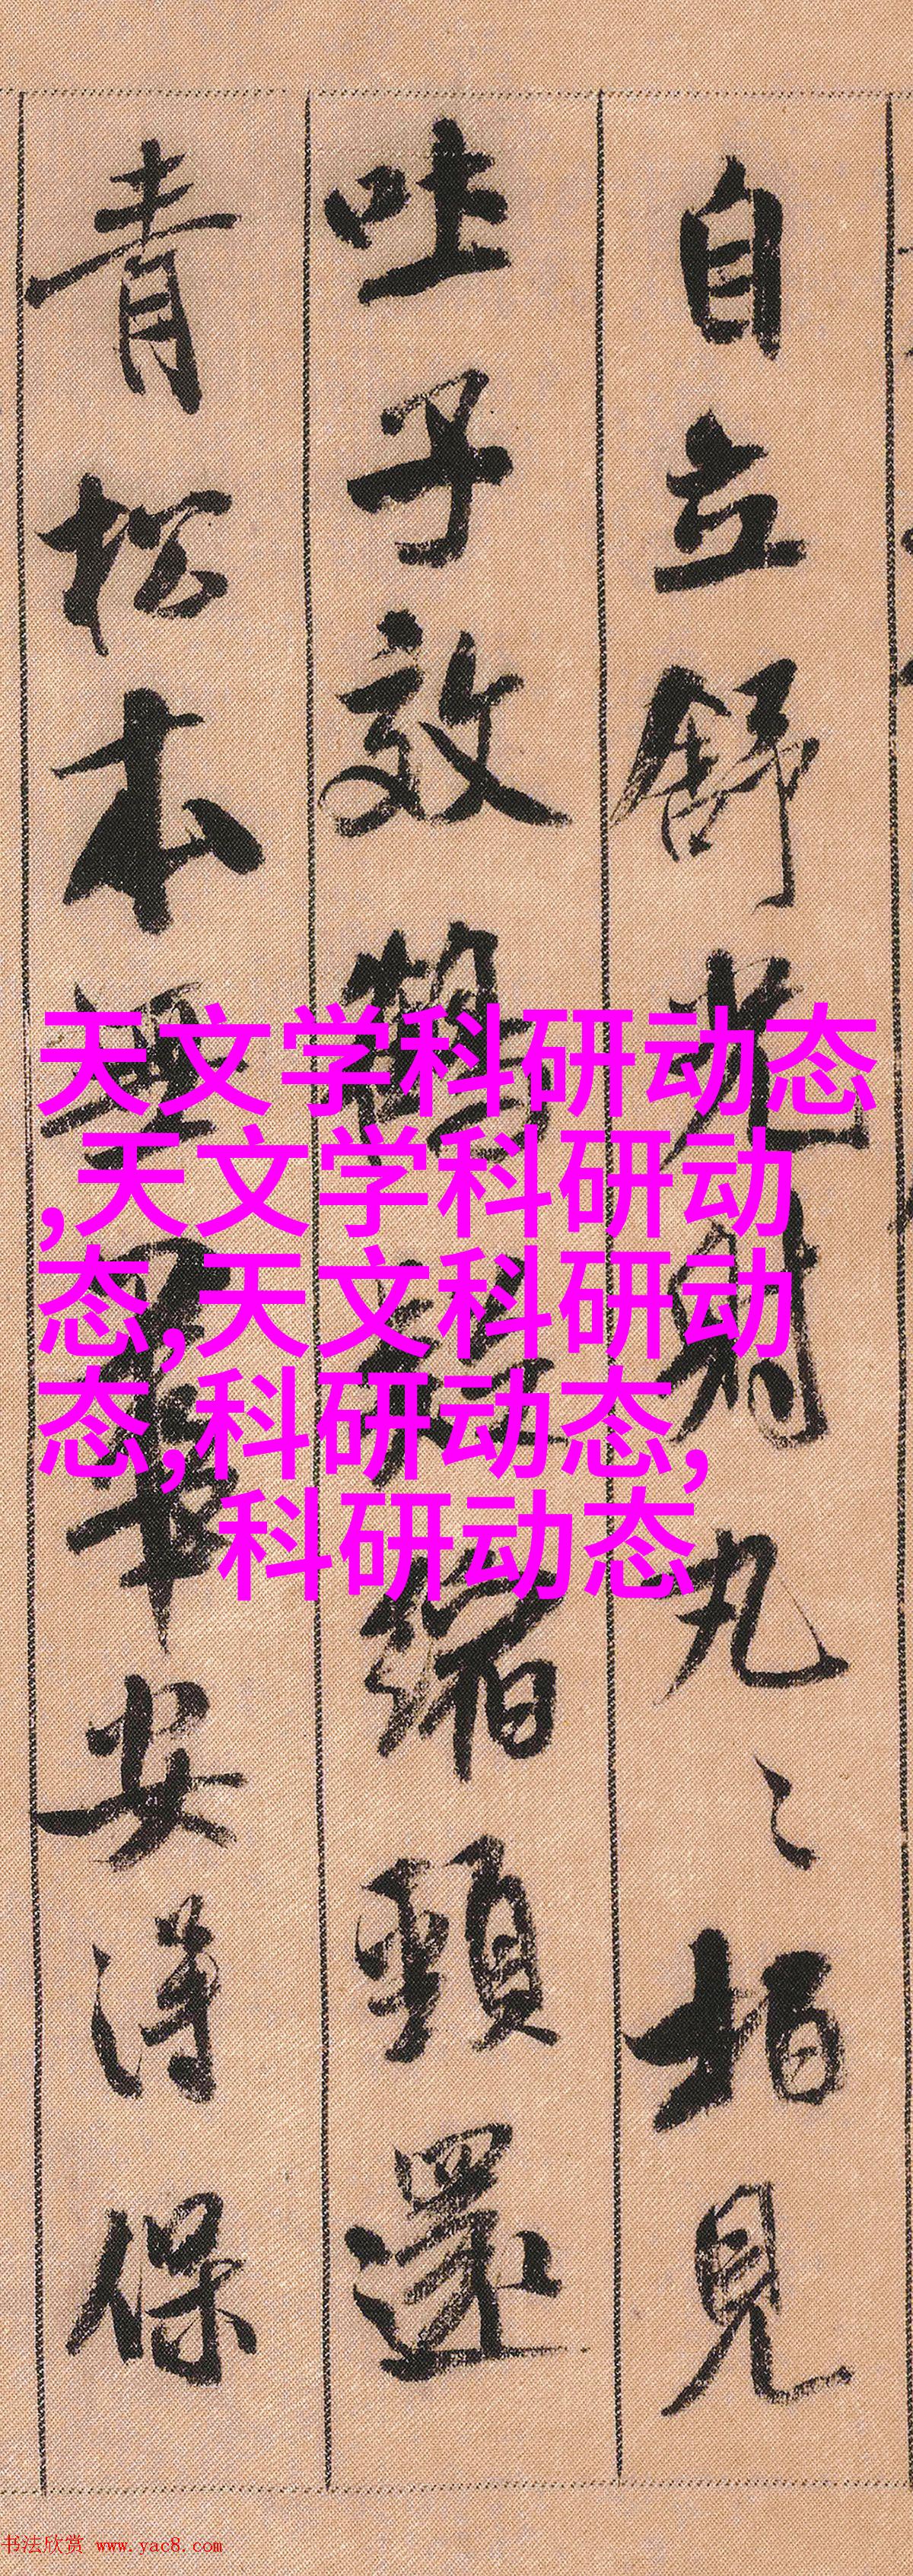 自立舒光射丸〻柏見
吐子效鶴疑縮頸還
青松本無華安得保
天文学科研动态
,天文学科研动
态,天文科研动
态,科研动态,
科研动态
书法欣赏 www.yac8.com